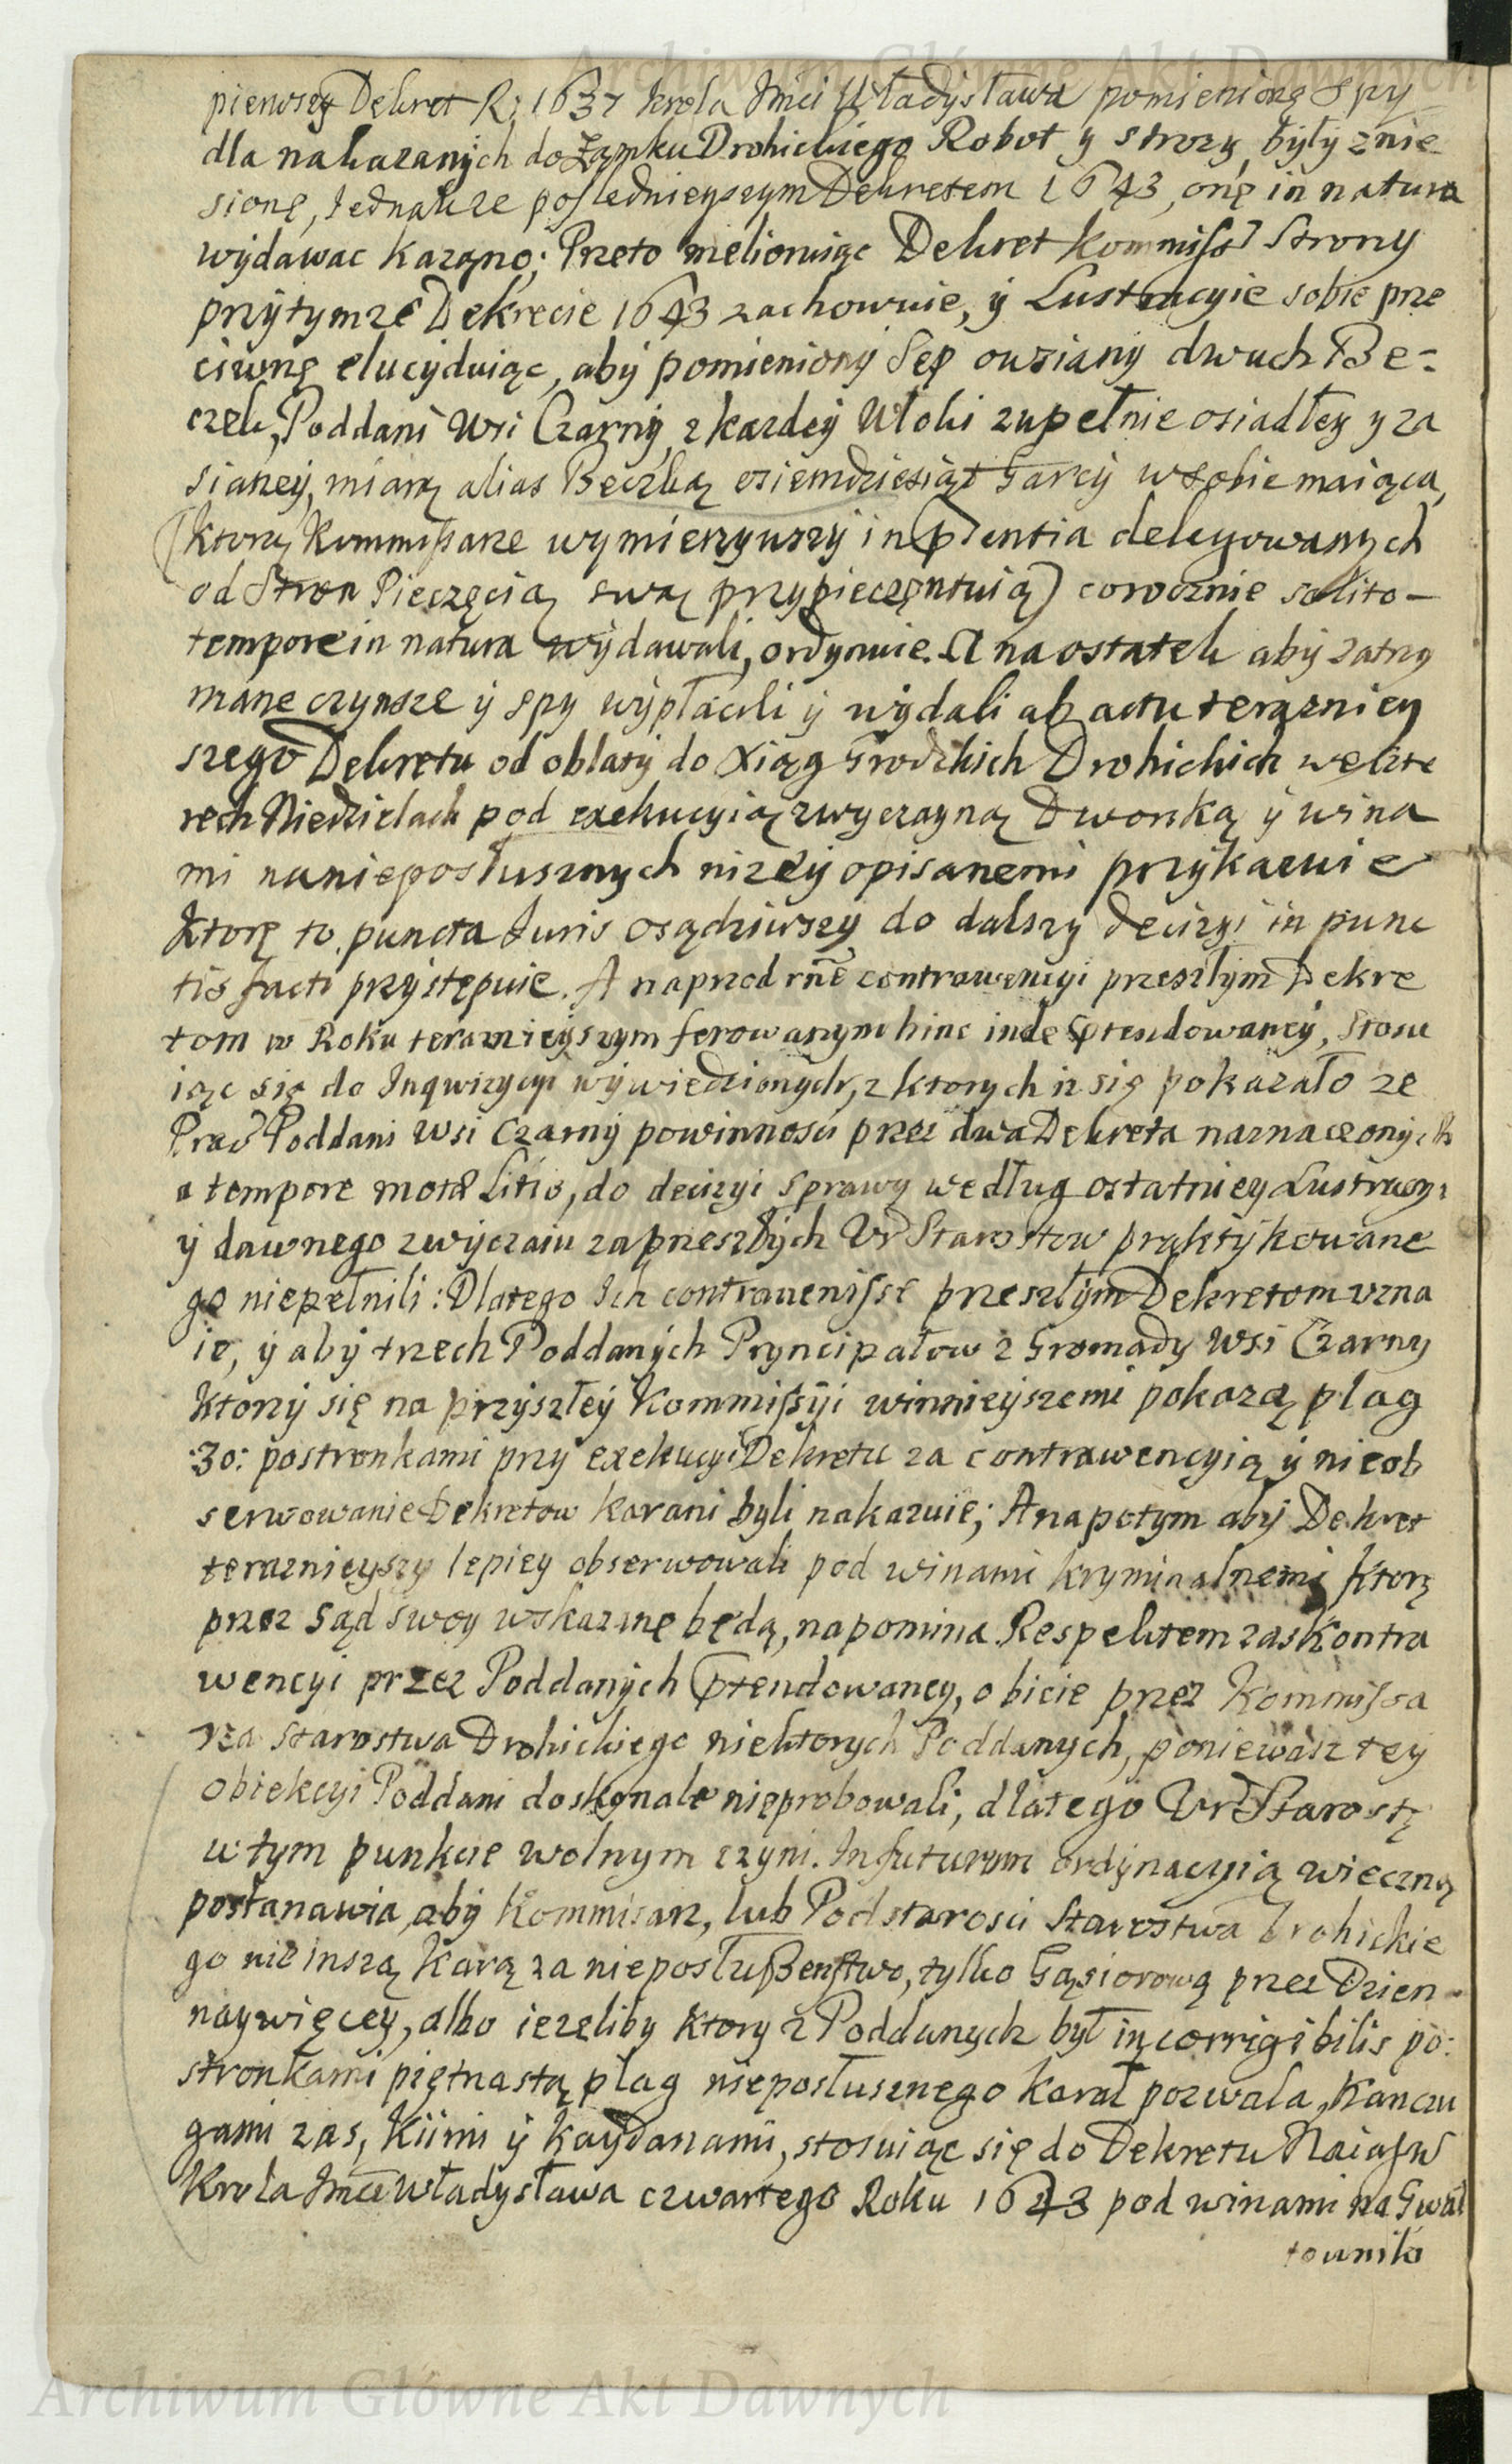 pierwszy Dekret R. 1637 krola Jmci Władysława pomienionę Spy
dla nakazanych do Zamku Drohickiego Robot y strozy, były znie
sionę, Jednakze poslednieyszym Dekretem 1643, onę in natura
wydawac kazano; Przeto meliorując Dekret Kommiss Strony
przytymze Dekrecie 1643 zachownie, y Lustracyie sobie prze
ciwnę elucyduiąc, aby pomieniony Sęp owsiany dwuch Be-
czek, Poddani Wsi Czarny z kazdey Włoki zupełnie osiadłey y za
sianey, miarą alias Beczką osiemdziesiąt Garcy w sobie maiącą,
(ktorą Kommissarze wymierzywszy in pntia delegowanych
od Stron Pieczęcią swą przypieczęntuią) corocznie solito-
tempore in natura wydawali, ordynuie. A na ostatek aby zatrzy
mane czynsze y spy wypłacili y wydali ab actu terazniey
szego Dekretu od oblaty do Xiąg Grodzkich Drohickich w czte
rech Niedzielach pod exekucyią zwyczayną Dworską y wina
mi na nieposłusznych nizey opisanemi przykazuie
Ktorę to puncta Juris osądziwszy do dalszy decizyi in punc
tis facti przystępuie. A naprzod rne contrawencyi przeszłym Dekre
tom w Roku teraznieyszym ferowanym hinc inde ptendowaney, Stosu
iąc się do Inqwizycyi wywiedzionych, z ktorych iz się pokazało ze
Prac Poddani Wsi Czarny powinnosci przez dwa Dekreta naznaczonych
a tempore motæ Litis, do decizyi Sprawy według ostatniey Lustracyi
y dawnego zwyczaiu za przeszłych Ur Starostow praktykowane
go niepełnili: Dlatego Ich contravenisse przeszłym Dekretom uzna
ie, y aby trzech Poddanych Pryncipałow z Gromady Wsi Czarny
Ktorzy się na przyszłey Kommissyi winnieyszemi pokazą plag
:30: postronkami przy exekucyi Dekretu za contrawencyią y nieob
serwowanie Dekretow karani byli nakazuie; A napotym aby Dekret
teraznieyszy lepiey obserwowali pod winami kryminalnemi, ktorę
przez Sąd swoy wskazane będą, napomina. Respektem zas Kontra
wencyi przez Poddanych ptendowaney, o bicie przez Kommissa
rza Starostwa Drohickiego niektorych Poddanych, poniewasz tey
obiekcyi Poddani doskonale nieprobowali, dlatego Ur Starostę
w tym punkcie wolnym czyni. In futurum ordynacyią wieczną
postanawia, aby Kommisarz, lub Podstarosci Starostwa Drohickie
go nie inszą karą za nieposłuszenstwo, tylko Gąsiorową przez Dzien
naywięcey, albo iezeliby ktory z Poddanych był incorrigibilis po:
stronkami piętnastą plag nieposłusznego karał pozwala, Kanczu
gami zas, Kiimi y Kaydanami, stosuiąc się do Dekretu Naiasn
Krola Jmci Władysława czwartego Roku 1643 pod winami na Gwał
townika
Archiwum Główne Akt Dawnych